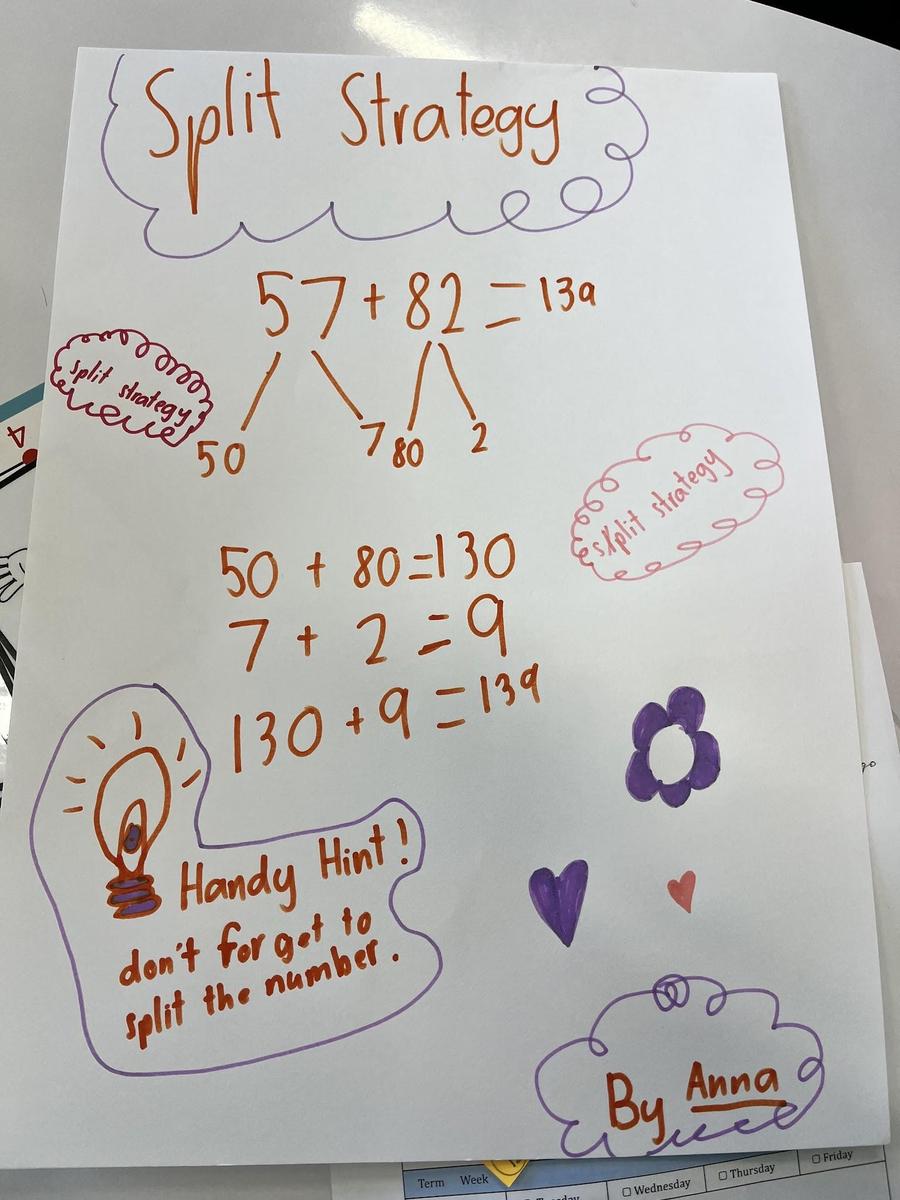 Split Strategy
57 + 82 = 139
split strategy
50 7 80 2
split strategy
50 + 80 = 130
7 + 2 = 9
130 + 9 = 139
Handy Hint!
don't forget to
split the number.
By Anna
4
go
Term Week
Tuesday
Wednesday
Thursday
Friday